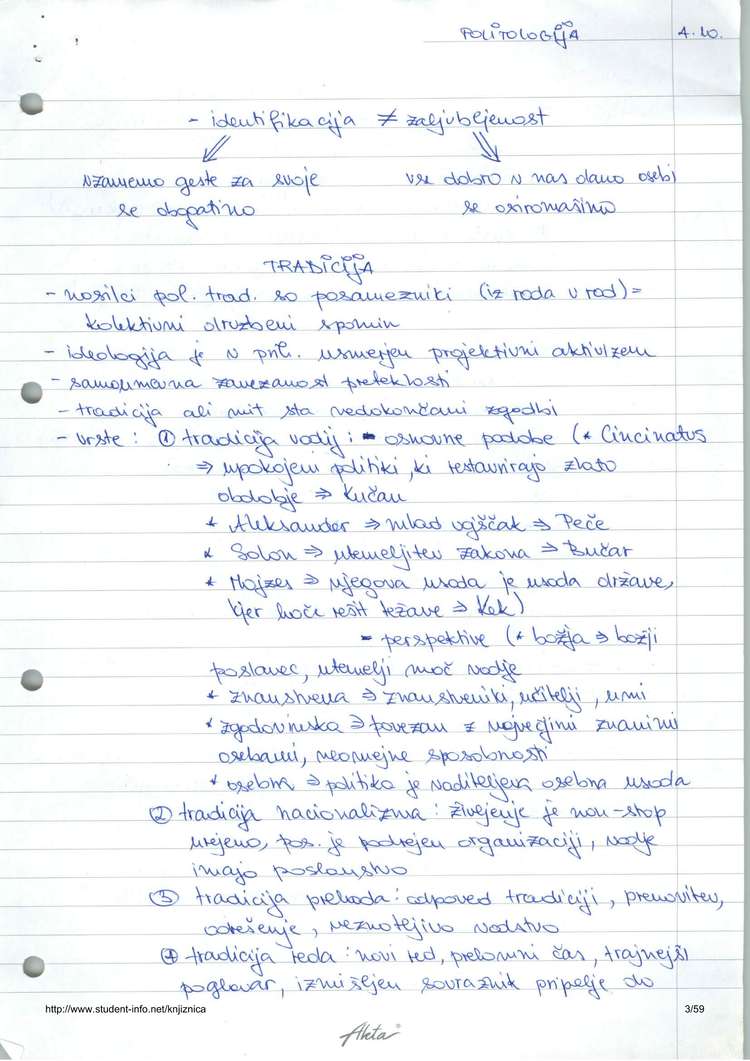 POLITOLOGIJA 4.10.
- identifikacija ≠ zaljubljenost
vzamemo geste za svoje vse dobro v nas damo osebi
se obogatimo se osiromašimo
TRADICIJA
- nosilci pol. trad. so posamezniki (iz roda v rod) =
kolektivni družbeni spomin
- ideologija je v prih. usmerjen projektivni aktivizem
- samoumevna zavezanost preteklosti
- tradicija ali mit sta nedokončani zgodbi
- vrste: ① tradicija vodij: - osnovne podobe (* Cincinatus
⇒ upokojeni politiki, ki restavrirajo zlato
obdobje ⇒ Kučan
* Aleksander ⇒ mlad vojščak ⇒ Peče
* Solon ⇒ utemeljitev zakona ⇒ Bučar
* Mojzes ⇒ njegova usoda je usoda države,
kjer hoče rešit težave ⇒ Kek)
- perspektive (* božja ⇒ božji
poslanec, utemelji moč vodje
* znanstvena ⇒ znanstveniki, učitelji, umi
* zgodovinska ⇒ povezan z največjimi znanimi
osebami, neomejne sposobnosti
* osebna ⇒ politika je voditeljeva osebna usoda
② tradicija nacionalizma: življenje je non-stop
urejeno, pos. je podrejen organizaciji, vodje
imajo poslanstvo
③ tradicija prehoda: odpoved tradiciji, prenovitev,
odrešenje, veznoteljivo vodstvo
④ tradicija reda: novi red, prelomni čas, trajnejši
poglavar, izmišljen sovražnik pripelje do
http://www.student-info.net/knjiznica 3/59
Akta